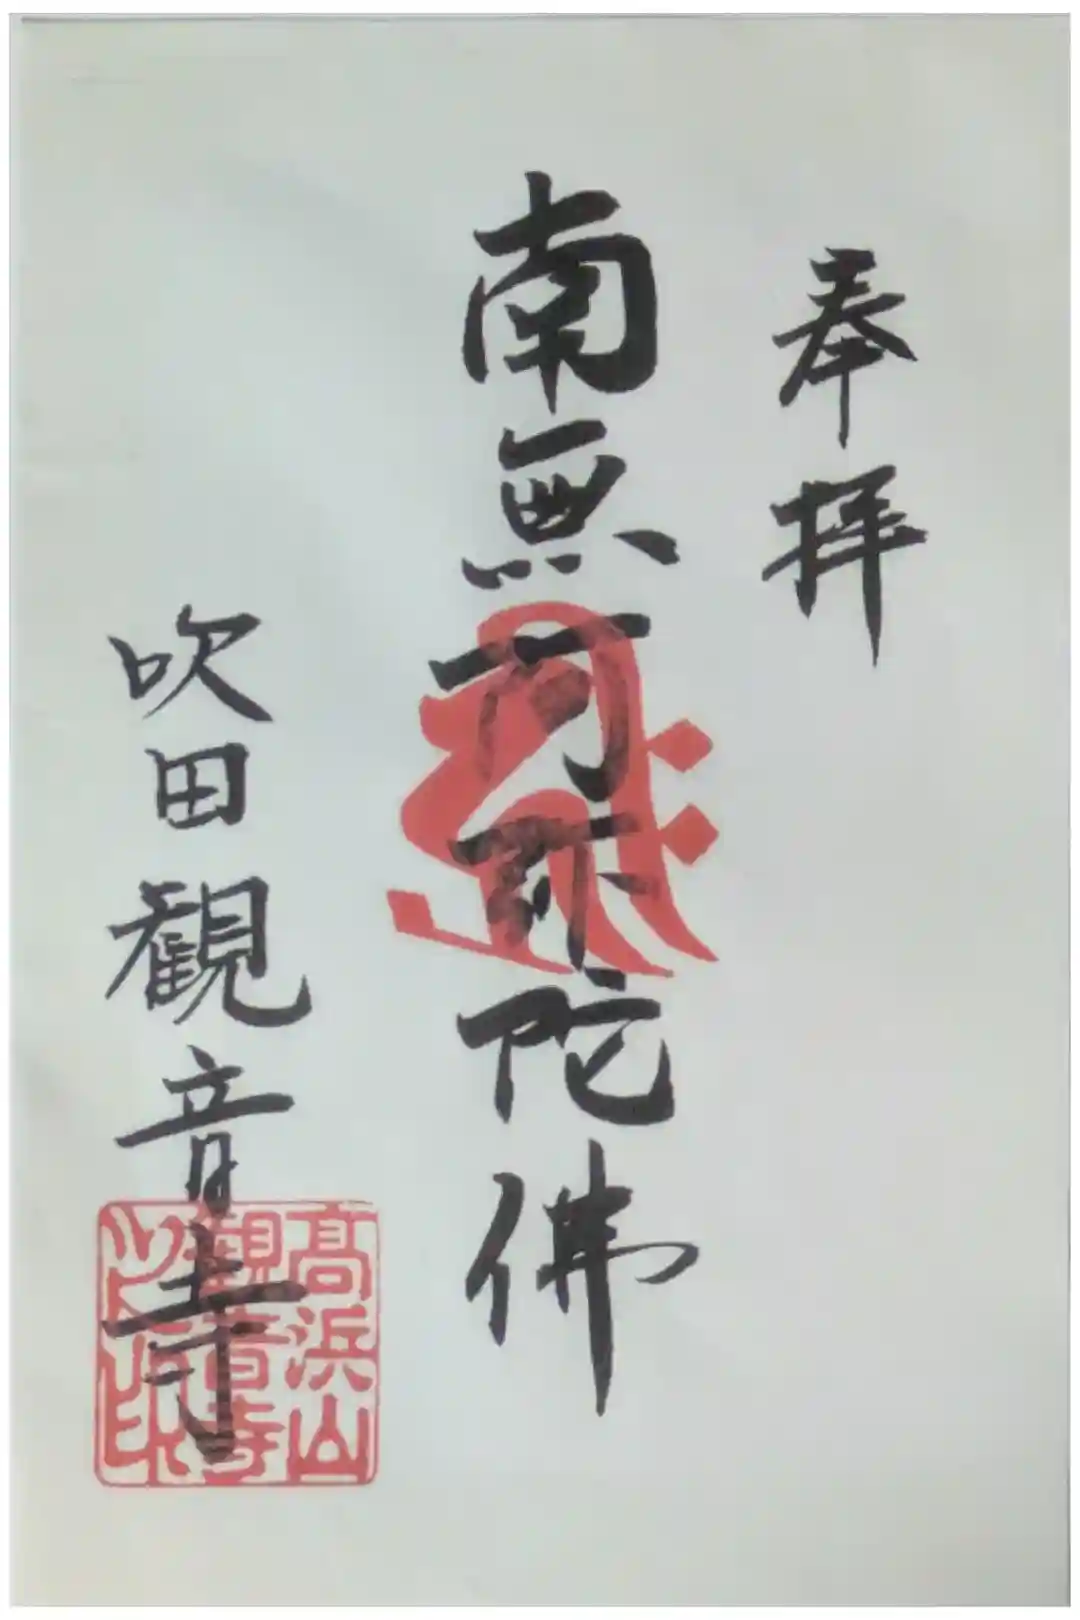 奉拝
南無阿弥陀佛
吹田観音寺
高浜山
観音寺
之印